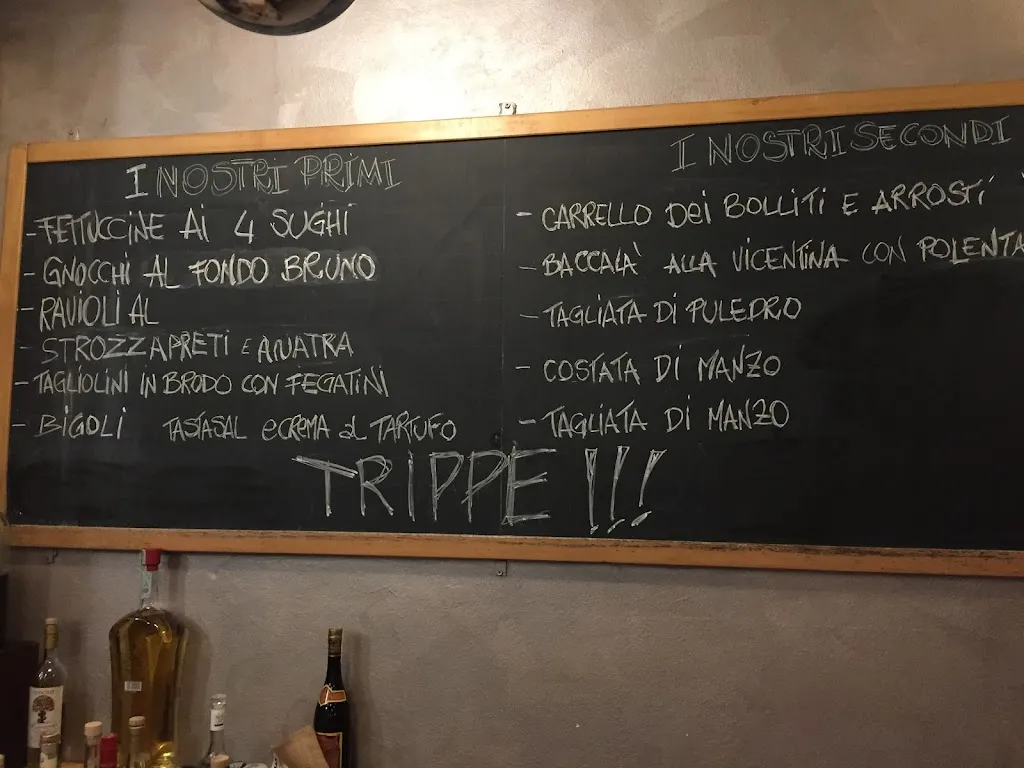 I NOSTRI PRIMI
- FETTUCCINE Ai 4 SUGHi
- GNOCCHi AL FONDO BRUNO
- RAViOLi AL
- STROZZAPRETi E ANATRA
- TAGLiOLiNi iN BRODO CON FEGATiNi
- BiGOLi TASTASAL e CREMA aL TARTUFO
I NOSTRI SECONDI
- CARRELLO Dei BOLLiTi E ARROSTi
- BACCALA' ALLA ViCENTiNA CON POLENTA
- TAGLiATA Di PULEDRO
- COSTATA Di MANZO
- TAGLiATA Di MANZO
TRIPPE !!!